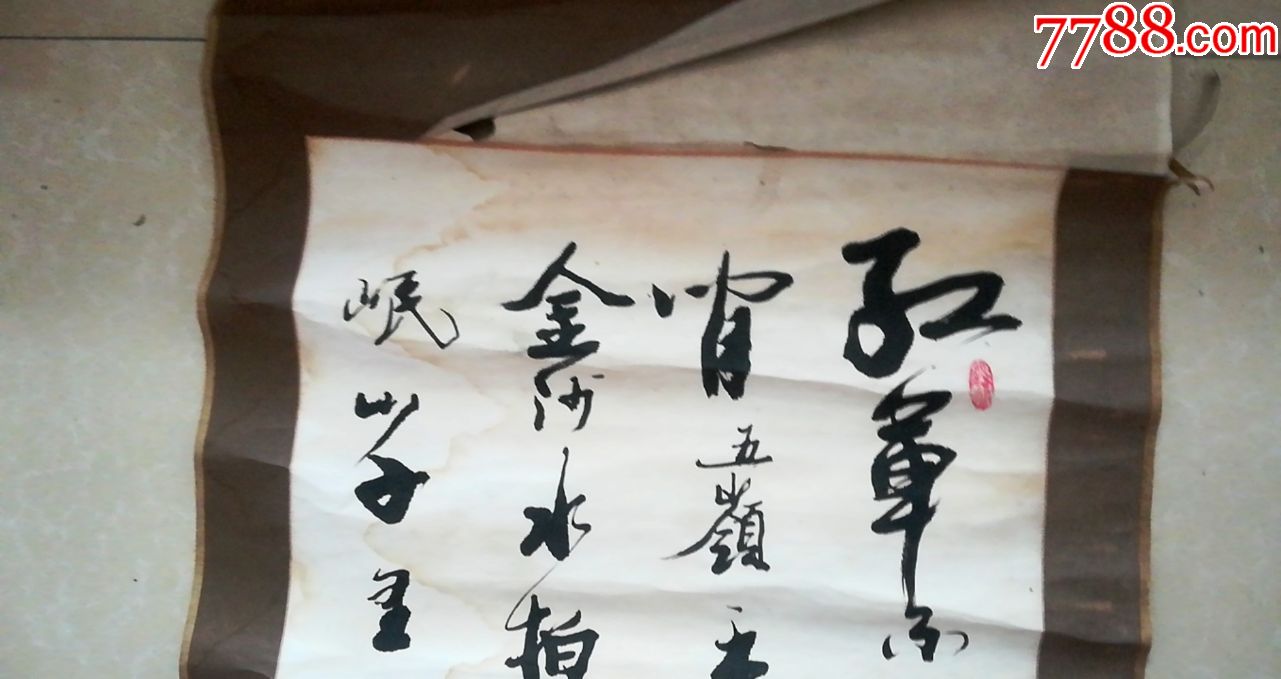 7788.com
紅軍不
閒五嶺
金沙水拍
岷山千里